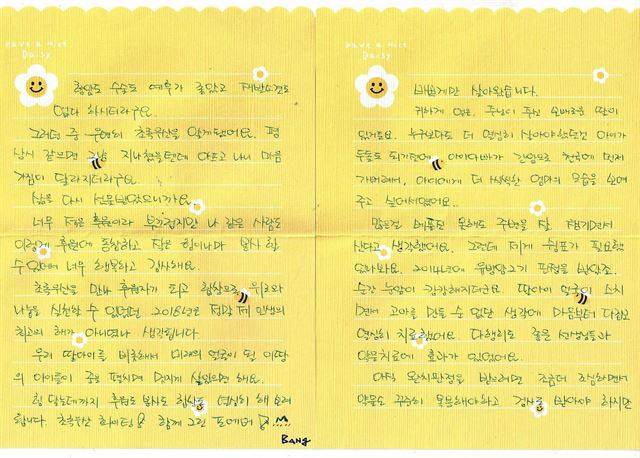 have a nice
Daisy
항암도 수술도 예후가 좋았고 재발소견도
없다 하시더라구요.
그러던 중 우연히 초록우산을 알게됐어요. 평
상시 같으면 그냥 지나쳤을텐데 아프고 나니 마음
가짐이 달라지더라구요.
삶을 다시 선물받았으니까요.
너무 적은 후원이라 부끄럽지만 나 같은 사람도
이렇게 후원에 동참하고 작은 힘이나마 봉사 할
수 있음에 너무 행복하고 감사해요.
초록우산을 만나 후원자가 되고 합창으로 위로와
나눔을 실천할 수 있었던 2018년은 정말 제 인생의
최고의 해가 아니였나 생각됩니다.
우리 딸아이를 비롯해서 미래의 얼굴이 될 이땅
의 아이들이 꿈을 펼치며 멋지게 살았으면 해요.
힘 닿는데까지 후원도 봉사도 합창도 열심히 해 보려
합니다. 초록우산 화이팅 함께 그린 포에버
Bang
have a nice
Daisy
바쁘게만 살아왔습니다.
귀하게 얻은, 주님이 주신 소중한 딸이
있거든요. 누구보다도 더 열심히 살아야했던건 아이가
두돌도 되기전에 아이아빠가 간암으로 천국에 먼저
가버려서, 아이에게 더 씩씩한 엄마의 모습을 보여
주고 싶어서였어요..
많은걸 베풀진 못해도 주변을 잘 챙기면서
산다고 생각했어요. 그런데 저에게 쉼표가 필요했
었나봐요. 2014년에 유방암2기 판정을 받았죠.
순간 눈앞이 캄캄해지더군요. 딸아이 얼굴이 스치
면서 고아를 만들 수 없단 생각에 마음부터 다잡고
열심히 치료했어요. 다행히도 좋은 선생님들과
약물치료에 효과가 있었어요.
아직 완치판정을 받으려면 조금더 조심하면서
약물도 꾸준히 복용해야하고 검사를 받아야 하지만